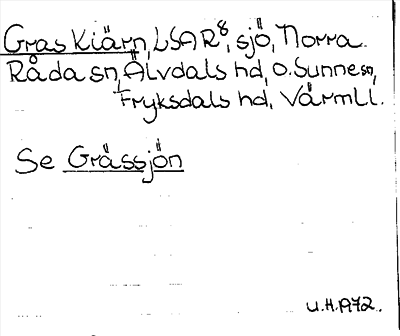 Gras Kiärn, LSA R⁸, sjö, Norra
Råda sn, Älvdals hd, o. Sunne sn,
Fryksdals hd, Värml l.
Se Gråssjön
U.H. 1972.